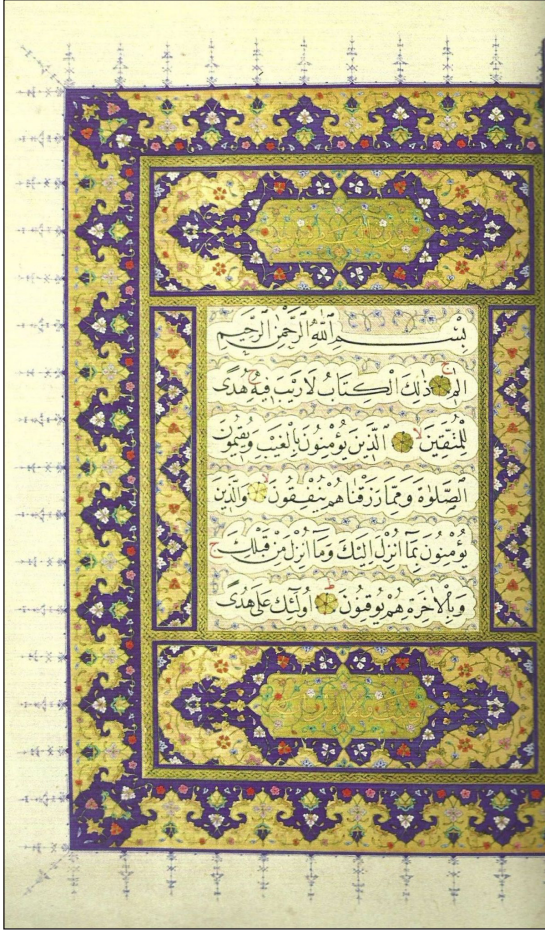 بِسْمِ اللّٰهِ الرَّحْمٰنِ الرَّحِيمِ
الٓمٓ ذٰلِكَ الْكِتَابُ لَا رَيْبَ فِيهِ هُدًى
لِلْمُتَّقِينَ اَلَّذِينَ يُؤْمِنُونَ بِالْغَيْبِ وَيُقِيمُونَ
الصَّلٰوةَ وَمِمَّا رَزَقْنَاهُمْ يُنْفِقُونَ وَالَّذِينَ
يُؤْمِنُونَ بِمَٓا اُنْزِلَ اِلَيْكَ وَمَٓا اُنْزِلَ مِنْ قَبْلِكَ
وَبِالْاٰخِرَةِ هُمْ يُوقِنُونَ اُولٰٓئِكَ عَلٰى هُدًى